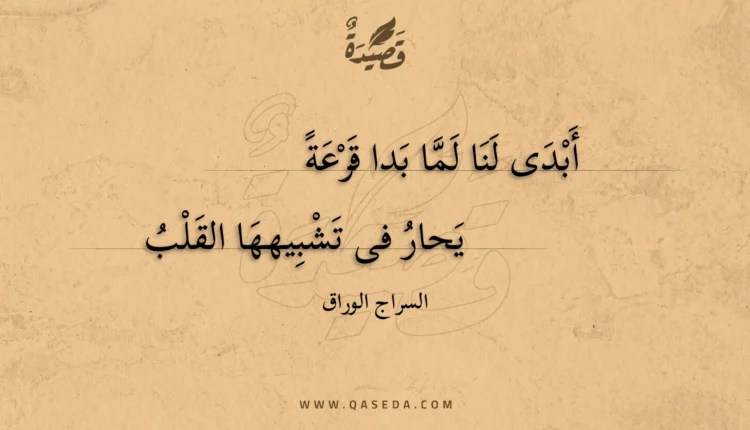 قَصِيدَةٌ
أَبْدَى لَنَا لَمَّا بَدا قَرْعَةً
يَحارُ فى تَشْبِيهِهَا القَلْبُ
السراج الوراق
WWW.QASEDA.COM